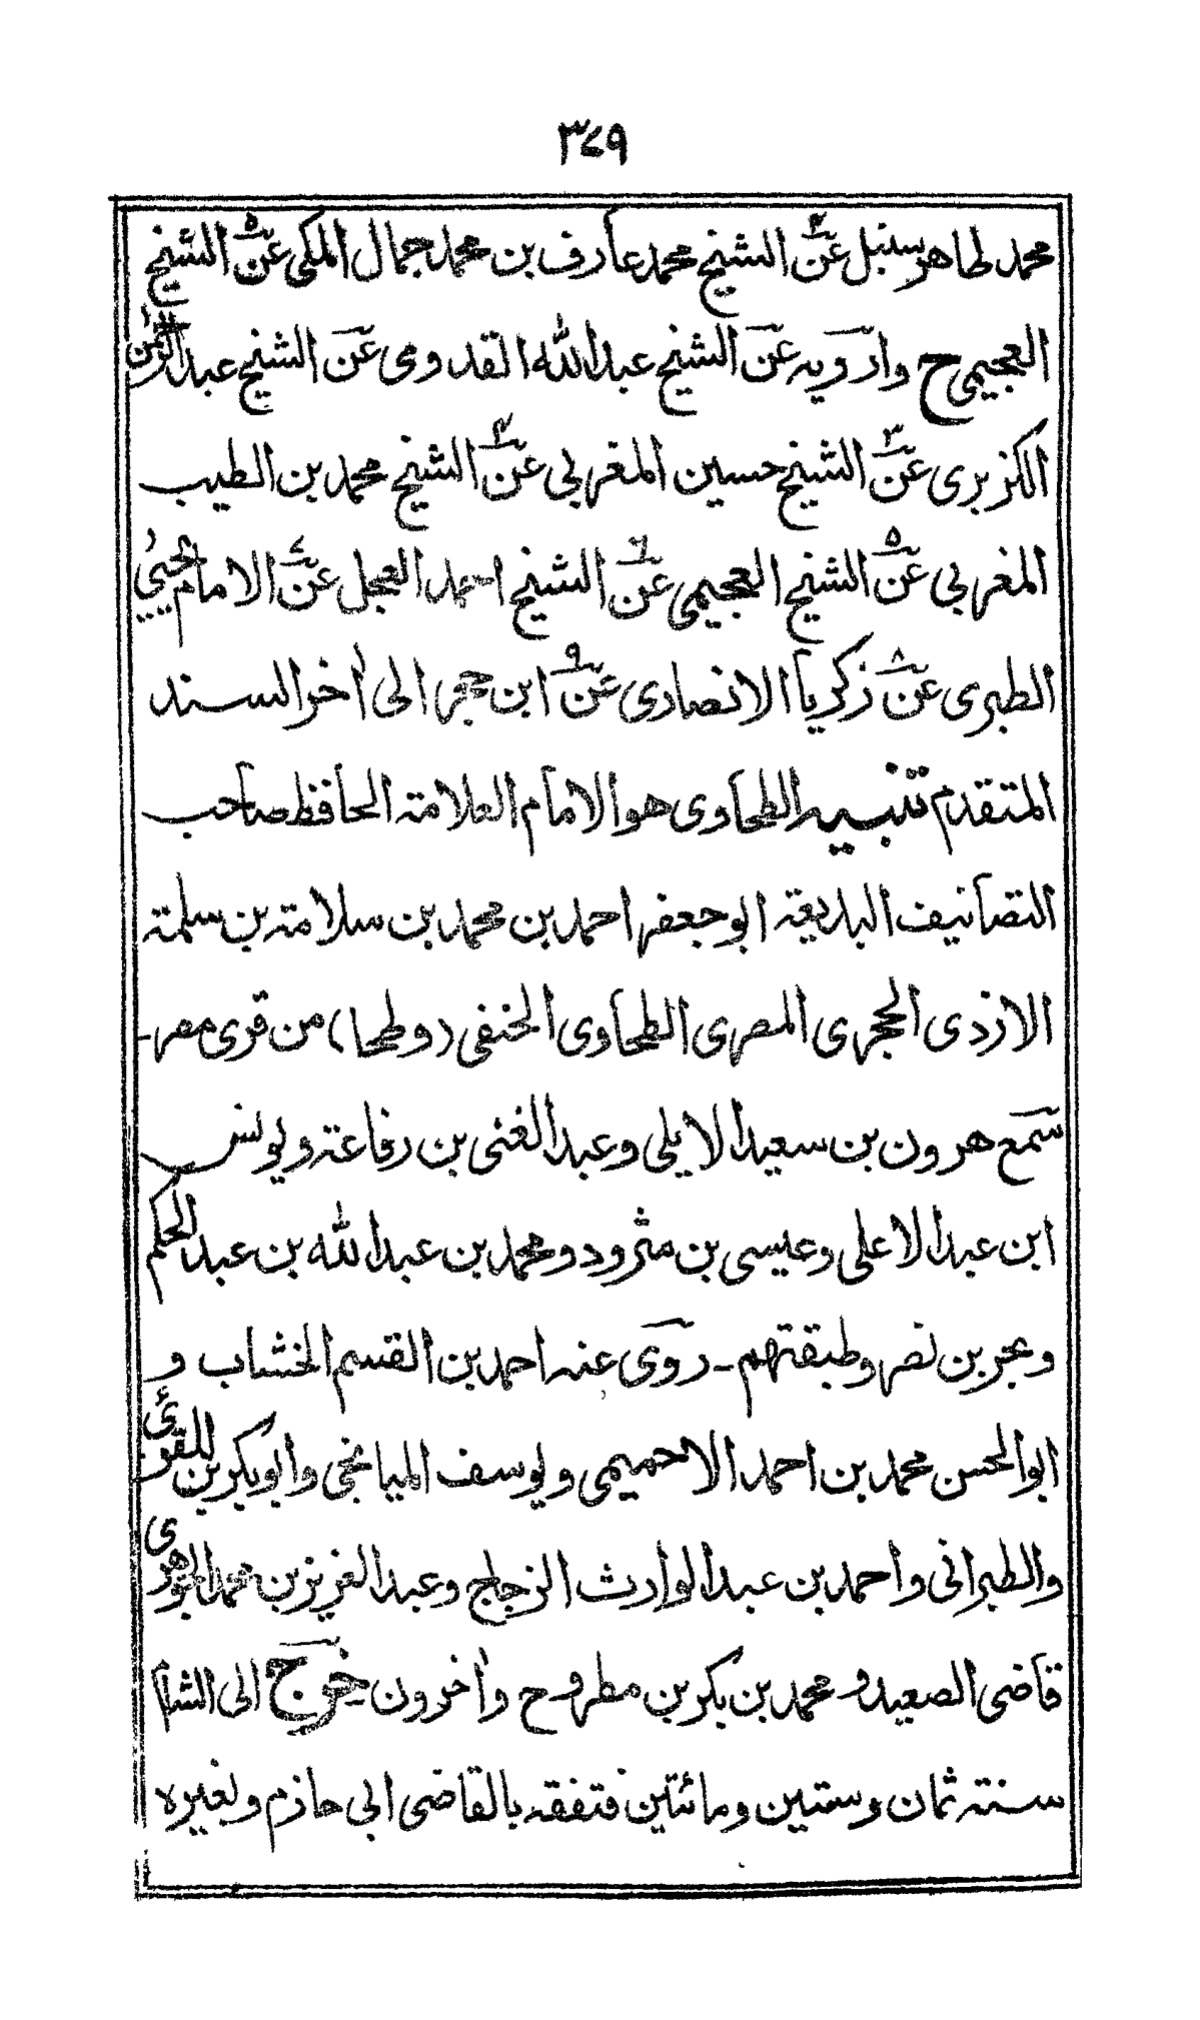 ٣٤٩
محمد طاهر سنبل عن٤ الشيخ محمد عارف بن محمد جمال المكى عن٥ الشيخ
العجيمى ح وارويه عن الشيخ عبدالله القدومى عن الشيخ عبدالرحمن
الكزبرى عن٣ الشيخ حسين المغربى عن٤ الشيخ محمد بن الطيب
المغربى عن٥ الشيخ العجيمى عن٦ الشيخ احمد العجل عن٧ الامام يحيى
الطبرى عن٨ زكريا الانصارى عن٩ ابن حجر الى اٰخر السند
المتقدم تنبيه الطحاوى هو الامام العلامة الحافظ صاحب
التصانيف البديعة ابو جعفر احمد بن محمد بن سلامة بن سلمة
الازدى الحجرى المصرى الطحاوى الحنفى (وطحا) من قرى مصر-
سمع هرون بن سعيد الايلى وعبد الغنى بن رفاعة ويونس
ابن عبد الاعلى وعيسى بن مثرود ومحمد بن عبدالله بن عبد الحكم
وبحر بن نصر وطبقتهم - روى عنه احمد بن القسم الخشاب و
ابو الحسن محمد بن احمد الاخميمى ويوسف الميانجى وابوبكر بن المقرئ
والطبرانى واحمد بن عبد الوارث الزجاج وعبد العزيز بن محمد الجوهرى
قاضى الصعيد و محمد بن بكر بن مطروح واٰخرون خرج الى الشام
سنة ثمان وستين ومائتين فتفقه بالقاضى ابى حازم وبغيره